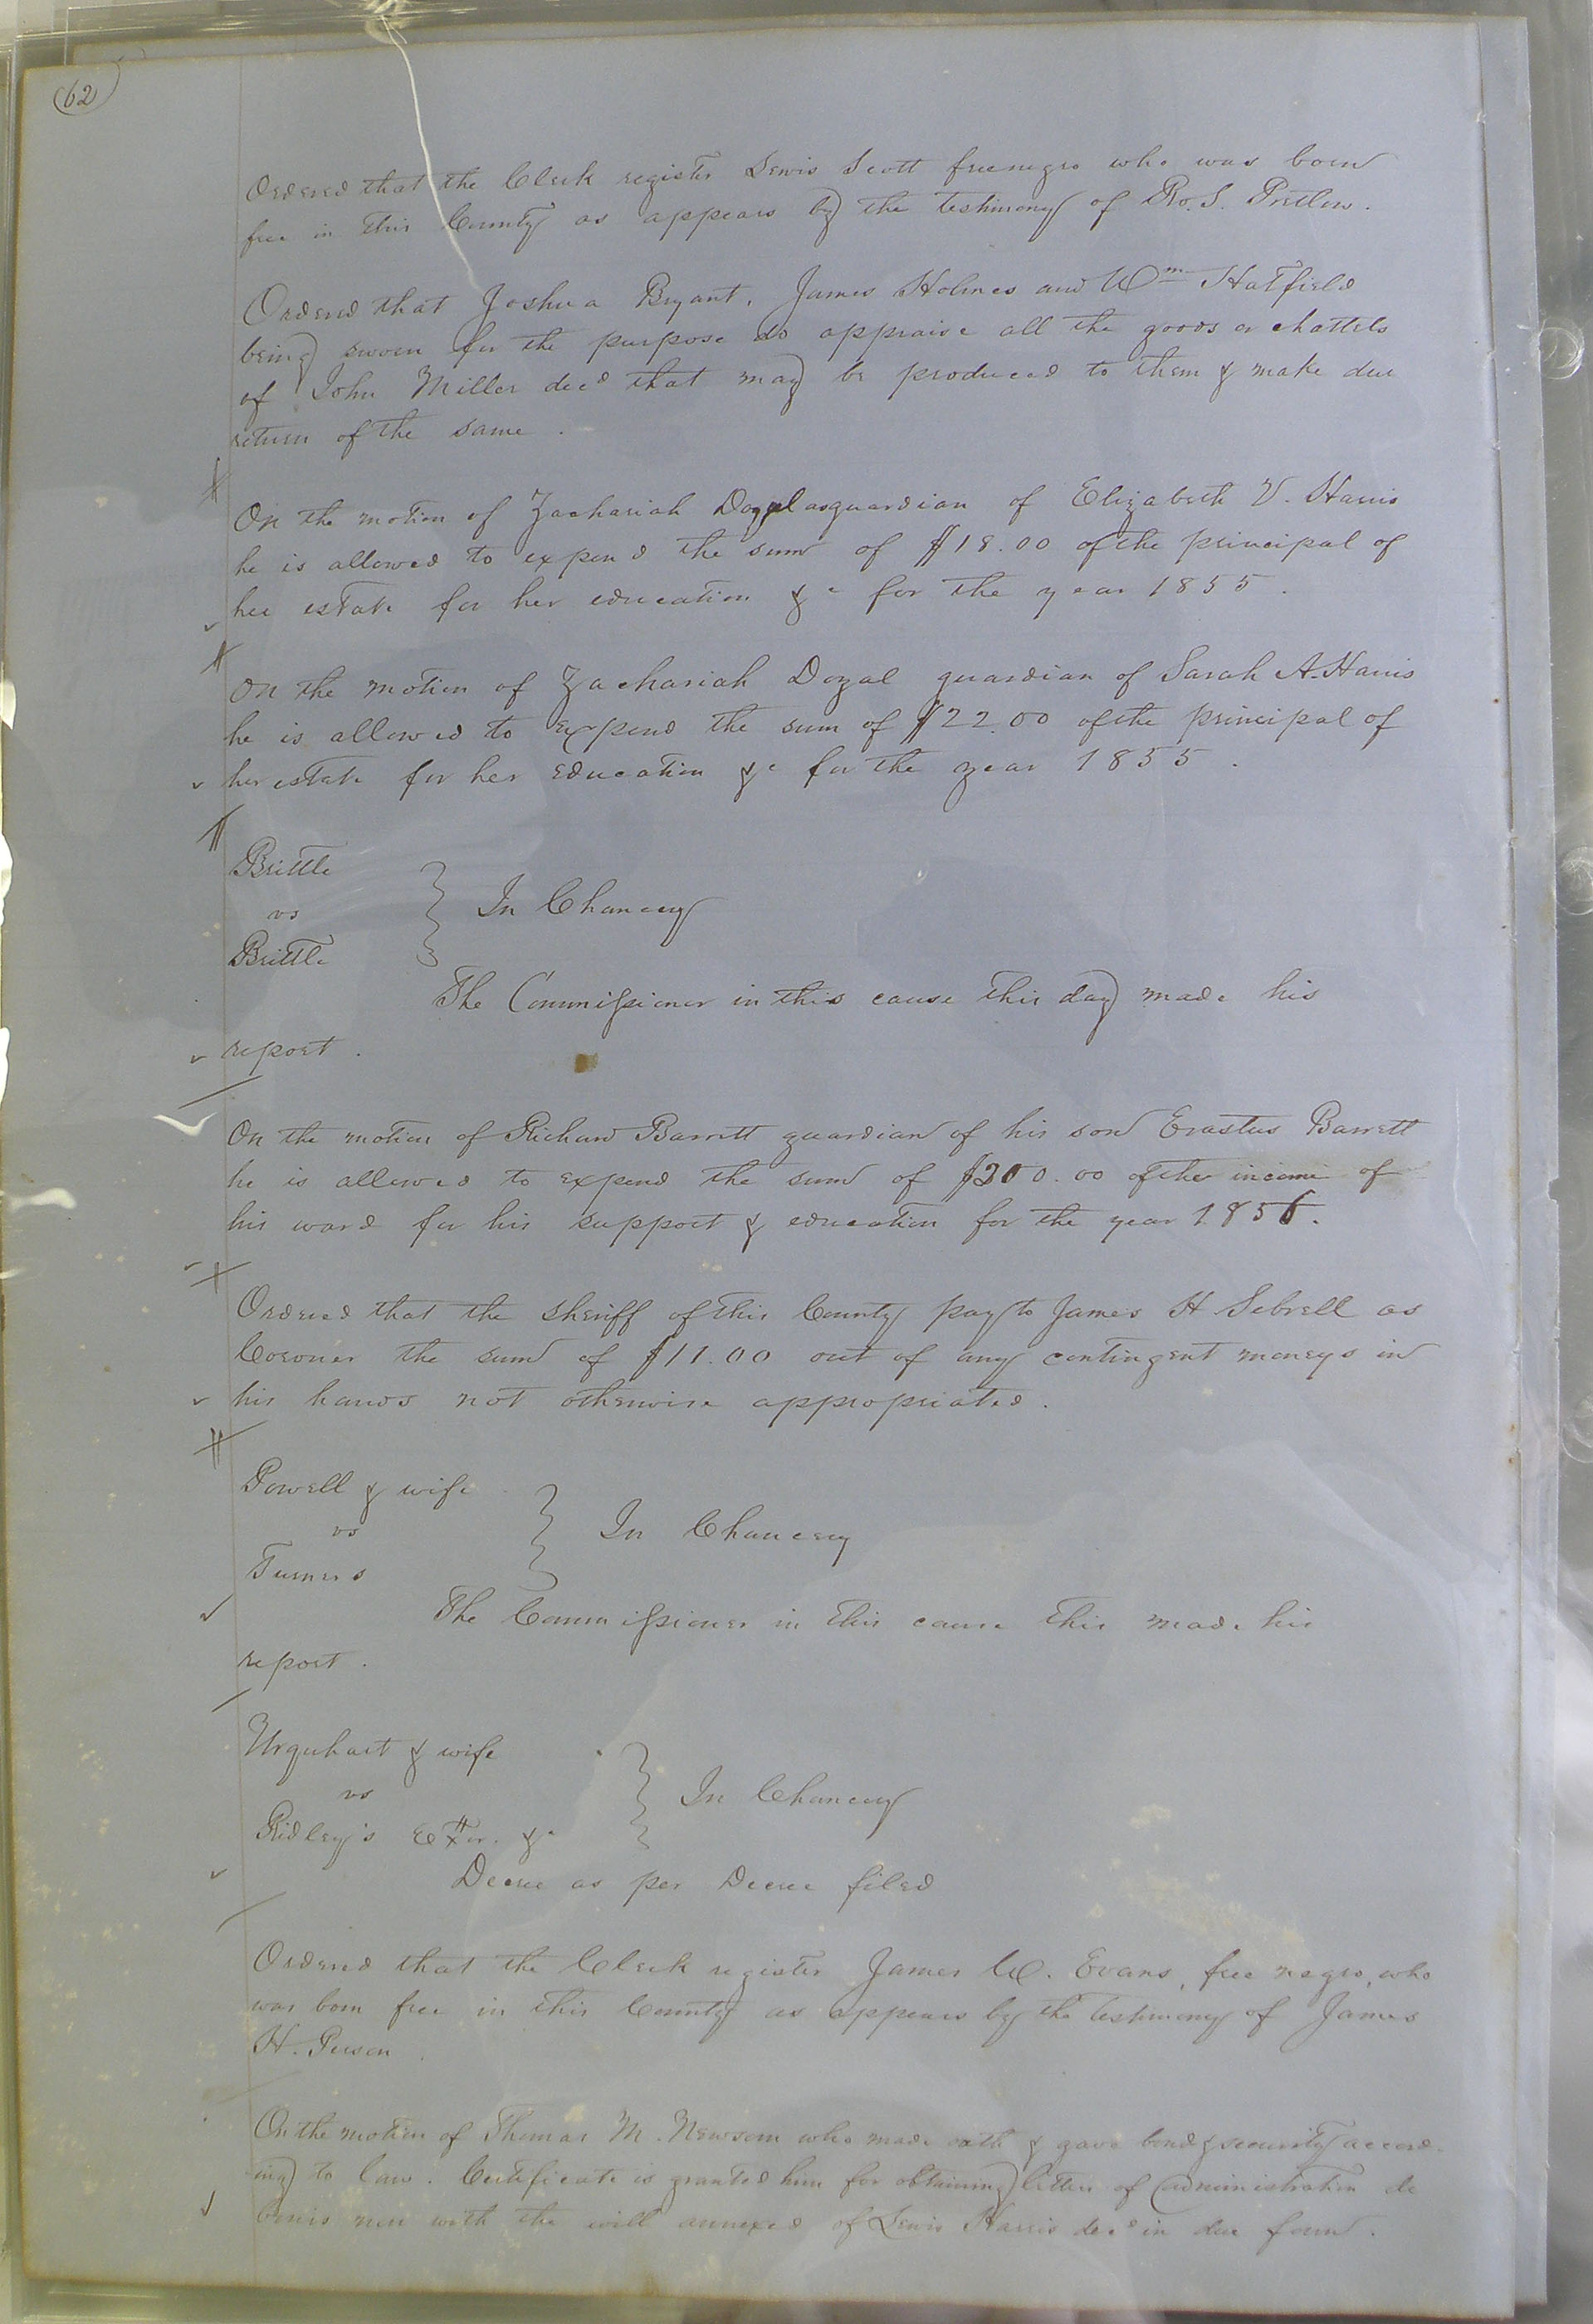 62
Ordered that the Clerk register Lewis Scott freenegro who was born
free in this County as appears by the testimony of Ro. S. Pretlow.
Ordered that Joshua Bryant, James Holmes and Wm Hatfield
being sworn for the purpose do appraise all the goods or chattels
of John Miller decd that may be produced to them & make due
return of the same.
On the motion of Zachariah guardian of Elizabeth V. Harris
he is allowed to expend the sum of $18.00 of the principal of
her estate for her education &c for the year 1855.
On the motion of Zachariah Dozal guardian of Sarah A. Harris
he is allowed to expend the sum of $22.00 of the principal of
her estate for her education &c for the year 1855.
Brittle
vs
Brittle
In Chancery
The Commissioner in this cause this day made his
report.
On the motion of Richard Barrett guardian of his son Erastus Barrett
he is allowed to expend the sum of $200.00 of the income of
his ward for his support & education for the year 1856.
Ordered that the Sheriff of this County pay to James H Sebrell as
Coroner the sum of $11.00 out of any contingent moneys in
his hands not otherwise appropriated.
Powell & wife
vs
Turners
In Chancery
The Commissioner in this cause this made his
report.
Urquhart & wife
vs
Ridley's Exor. &c
In Chancery
Decree as per Decree filed
Ordered that the Clerk register James W. Evans, free negro, who
was born free in this County as appears by the testimony of James
H. Person.
On the motion of Thomas M. Newsom who made oath & gave bond & security accord-
ing to law. Certificate is granted him for obtaining letters of administration de
bonis non with the will annexed of Lewis Harris decd in due form.